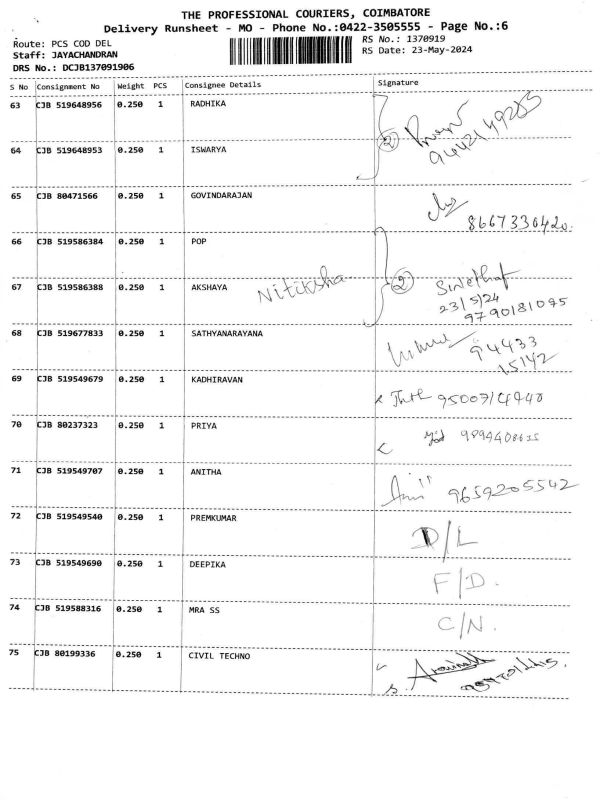 THE PROFESSIONAL COURIERS, COIMBATORE
Delivery Runsheet - MO - Phone No.:0422-3505555 - Page No.:6
Route: PCS COD DEL
RS No.: 1370919
Staff: JAYACHANDRAN
RS Date: 23-May-2024
DRS No.: DCJB137091906
S No Consignment No Weight PCS Consignee Details Signature
63 CJB 519648956 0.250 1 RADHIKA
2 9442149285
64 CJB 519648953 0.250 1 ISWARYA
65 CJB 80471566 0.250 1 GOVINDARAJAN
8667330420
66 CJB 519586384 0.250 1 POP
67 CJB 519586388 0.250 1 AKSHAYA Nitiksha 2
23/5/24
9790181095
68 CJB 519677833 0.250 1 SATHYANARAYANA
94433
15142
69 CJB 519549679 0.250 1 KADHIRAVAN
70 CJB 80237323 0.250 1 PRIYA
71 CJB 519549707 0.250 1 ANITHA
9659205542
72 CJB 519549540 0.250 1 PREMKUMAR D/L
73 CJB 519549690 0.250 1 DEEPIKA F/D.
74 CJB 519588316 0.250 1 MRA SS C/N.
75 CJB 80199336 0.250 1 CIVIL TECHNO